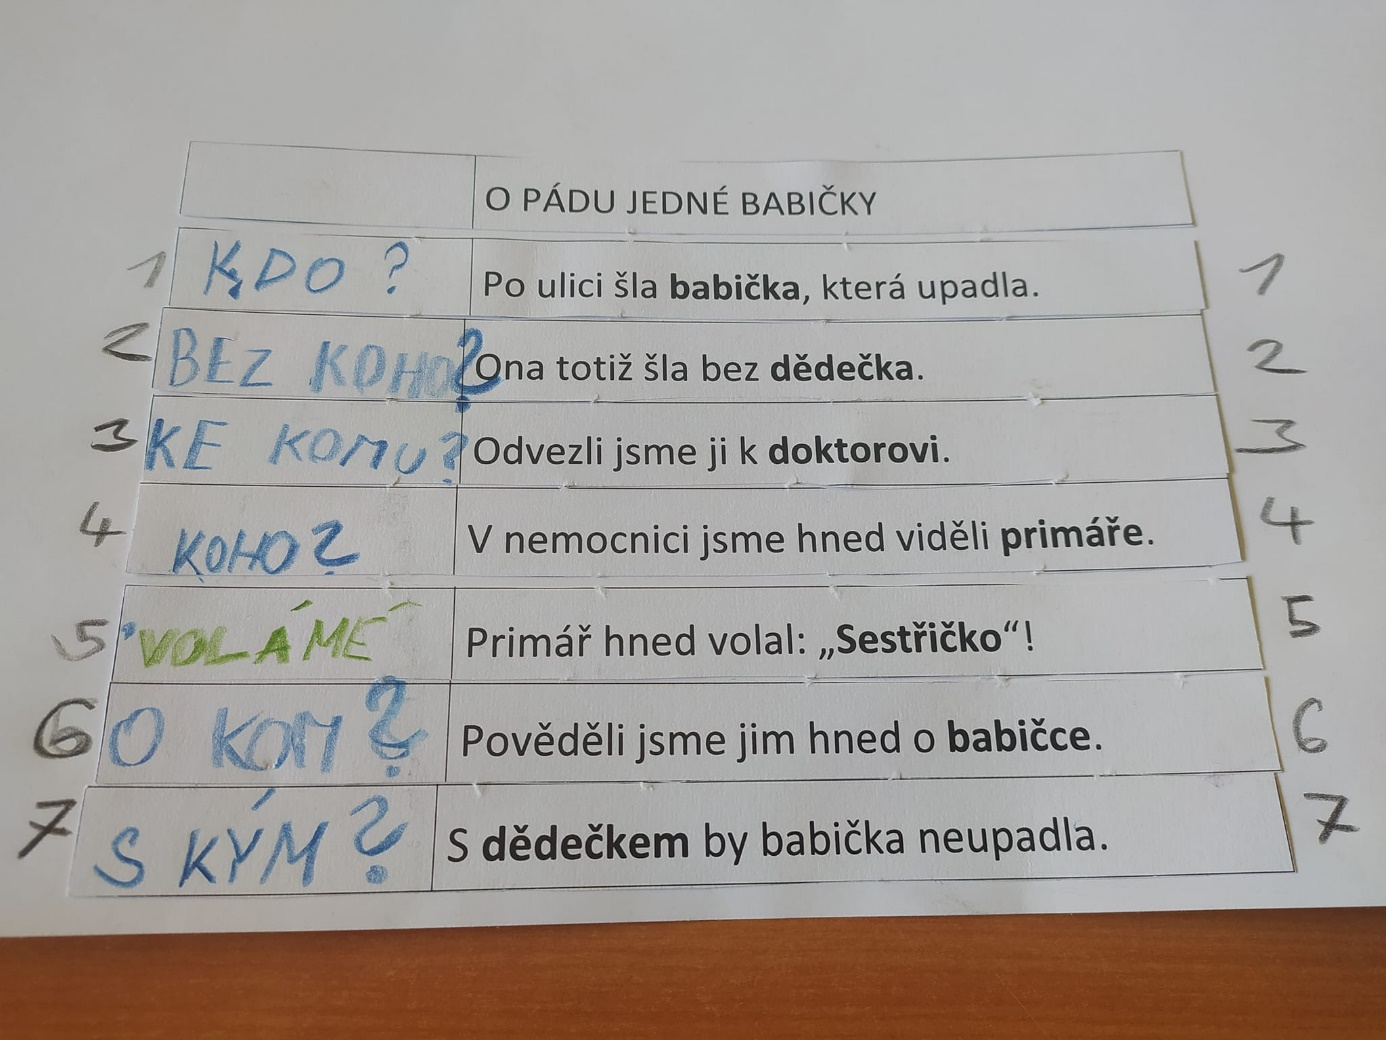 O PÁDU JEDNÉ BABIČKY
1 KDO? Po ulici šla babička, která upadla. 1
2 BEZ KOHO? Ona totiž šla bez dědečka. 2
3 KE KOMU? Odvezli jsme ji k doktorovi. 3
4 KOHO? V nemocnici jsme hned viděli primáře. 4
5 VOLÁMÉ Primář hned volal: „Sestřičko“! 5
6 O KOM? Pověděli jsme jim hned o babičce. 6
7 S KÝM? S dědečkem by babička neupadla. 7